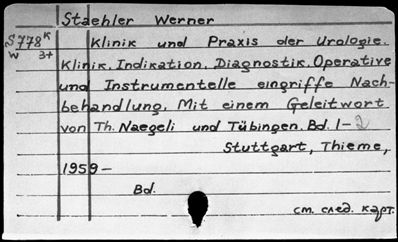 Staehler Werner
S778к Klinik und Praxis der Urologie.
w 3+ Klinik, Indikation, Diagnostik, Operative
und Instrumentelle eingriffe Nach-
behandlung. Mit einem Geleitwort
von Th. Naegeli und Tübingen. Bd. 1-2
Stuttgart, Thieme,
1959-
Bd.
см. след. карт.